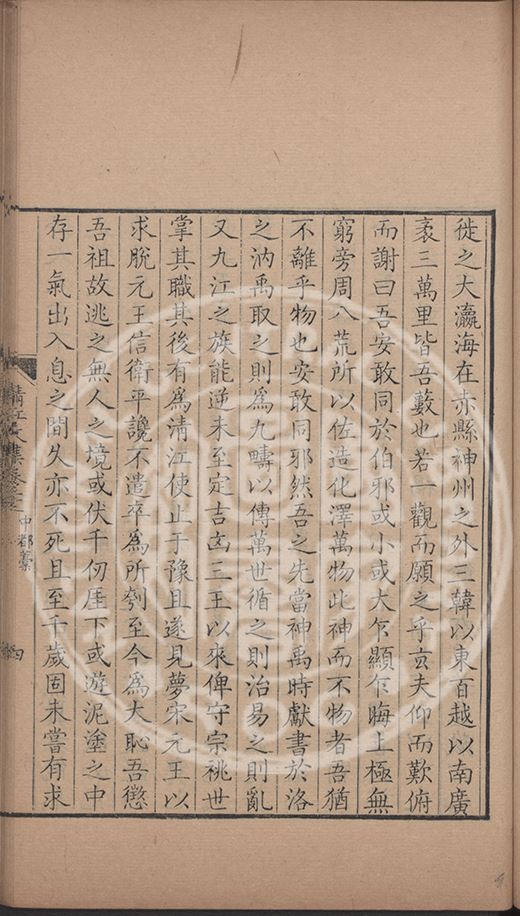 徙之大瀛海在赤縣神州之外三韓以東百越以南廣
袤三萬里皆吾藪也若一觀而願之乎玄夫仰而歎俯
而謝曰吾安敢同於伯邪或小或大乍顯乍晦上極無
窮旁周八荒所以佐造化澤萬物此神而不物者吾猶
不離乎物也安敢同邪然吾之先當神禹時獻書於洛
之汭禹取之則為九疇以傳萬世循之則治易之則亂
又九江之族能逆未至定吉凶三王以來俾守宗祧世
掌其職其後有為清江使止于豫且遂見夢宋元王以
求脫元王信衛平讒不遣卒為所刳至今為大恥吾懲
吾祖故逃之無人之境或伏千仞厓下或遊泥塗之中
存一氣出入息之間久亦不死且至千歲固未嘗有求
清江 集卷之 中都藁 四